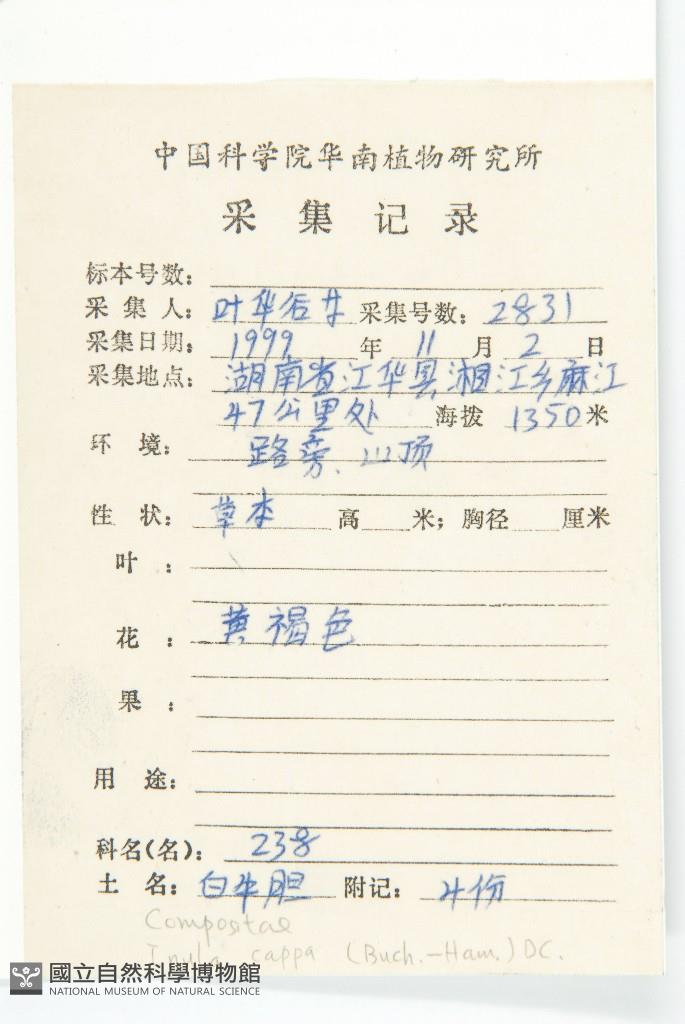 中国科学院华南植物研究所
采集记录
标本号数：
采集人：叶华谷 采集号数：2831
采集日期：1999年11月2日
采集地点：湖南省江华县湘江乡麻江
47公里处 海拨1350米
环境：路旁、山顶
性状：草本 高 米；胸径 厘米
叶：
花：黄褐色
果：
用途：
科名(名)：238
土名：白牛胆 附记：4份
Compostae
Inula cappa (Buch.-Ham.) DC.
國立自然科學博物館
NATIONAL MUSEUM OF NATURAL SCIENCE